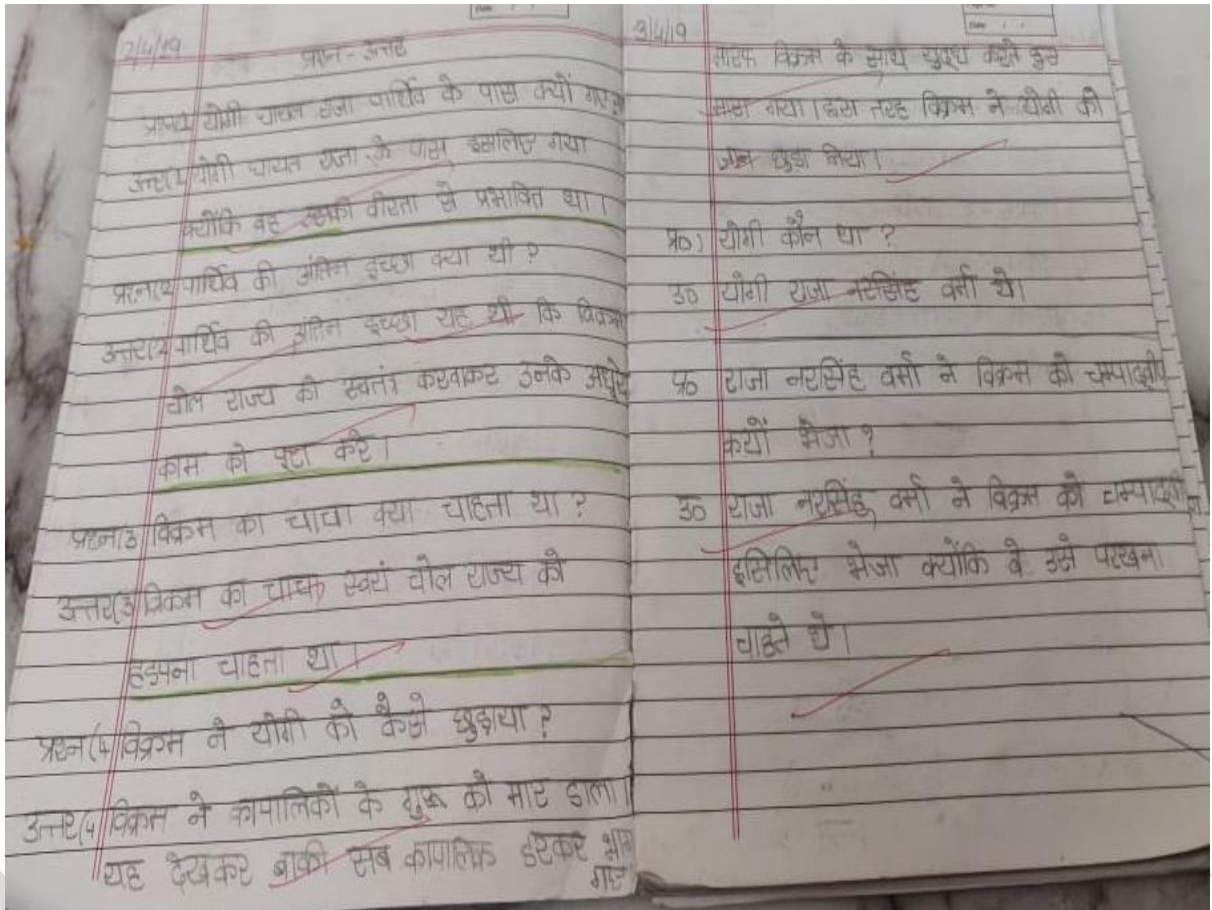 2/4/19
प्रश्न - उत्तर
प्रश्न(1 योगी घायल राजा पार्थिव के पास क्यों गया?
उत्तर(1 योगी घायल राजा के पास इसलिए गया
क्योंकि वह उसकी वीरता से प्रभावित था।
प्रश्न(2 पार्थिव की अंतिम इच्छा क्या थी ?
उत्तर(2 पार्थिव की अंतिम इच्छा यह थी कि विक्रम
चोल राज्य को स्वतंत्र करवाकर उनके अधूरे
काम को पूरा करे।
प्रश्न(3 विक्रम का चाचा क्या चाहता था ?
उत्तर(3 विक्रम का चाचा स्वयं चोल राज्य को
हड़पना चाहता था।
प्रश्न(4 विक्रम ने योगी को कैसे छुड़ाया ?
उत्तर(4 विक्रम ने कापालिकों के गुरू को मार डाला।
यह देखकर बाकी सब कापालिक डरकर भाग
गए
3/4/19
विक्रम के साथ युद्ध करते हुए
गया। इस तरह विक्रम ने योगी को
छुड़ा लिया।
प्र०) योगी कौन था ?
उ० योगी राजा नरसिंह वर्मा थे।
प्र० राजा नरसिंह वर्मा ने विक्रम को चम्पाद्वीप
क्यों भेजा ?
उ० राजा नरसिंह वर्मा ने विक्रम को चम्पाद्वीप
इसिलिए भेजा क्योंकि वे उसे परखना
चाहते थे।